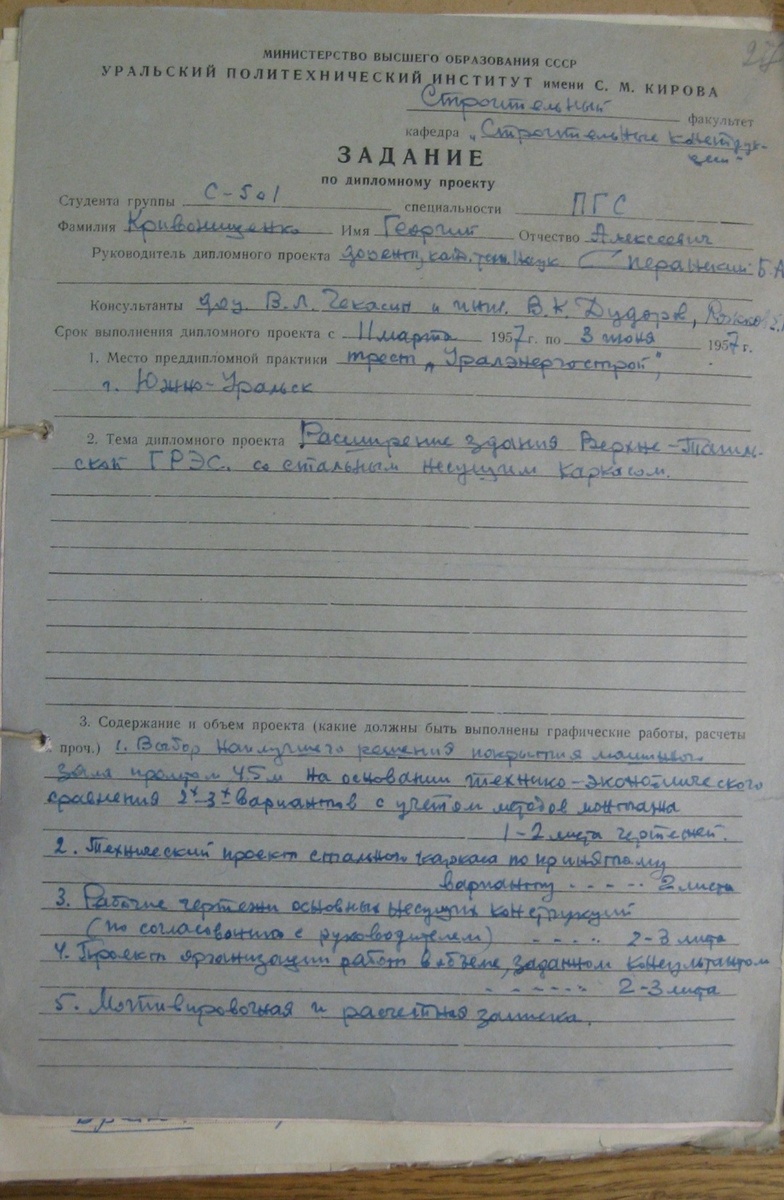 МИНИСТЕРСТВО ВЫСШЕГО ОБРАЗОВАНИЯ СССР
УРАЛЬСКИЙ ПОЛИТЕХНИЧЕСКИЙ ИНСТИТУТ имени С. М. КИРОВА
Строительный факультет
кафедра „Строительные конструк-
ции"
ЗАДАНИЕ
по дипломному проекту
Студента группы С-501 специальности ПГС
Фамилия Кривонищенко Имя Георгий Отчество Алексеевич
Руководитель дипломного проекта доцент, канд. техн. наук Сперанский Б.А
Консультанты доц. В.Л. Чекасин и инж. В.К. Дудоров,
Срок выполнения дипломного проекта с 11 марта 1957 г. по 3 июня 1957 г.
1. Место преддипломной практики трест „Уралэнергострой",
г. Южно-Уральск
2. Тема дипломного проекта Расширение здания Верхне-Тагиль-
ской ГРЭС. со стальным несущим каркасом.
3. Содержание и объем проекта (какие должны быть выполнены графические работы, расчеты
проч.) 1. Выбор наилучшего решения покрытия машинного
зала пролетом 45 м на основании технико-экономического
сравнения 2х-3х вариантов с учетом методов монтажа
1-2 листа чертежей.
2. Технический проект стального каркаса по принятому
варианту - - - - - 2 листа
3. Рабочие чертежи основных несущих конструкций
(по согласованию с руководителем) - - - - - 2-3 листа
4. Проект организации работ в объеме, заданном консультантом
- - - - - - 2-3 листа
5. Мотивировочная и расчетная записка.